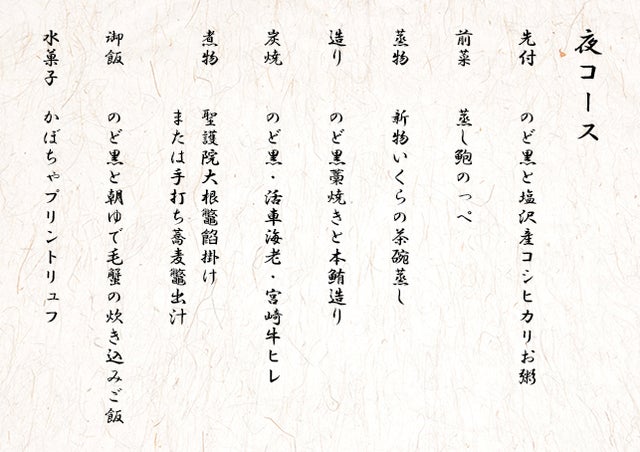 夜コース
先付 のど黒と塩沢産コシヒカリお粥
前菜 蒸し鮑のっぺ
蒸物 新物いくらの茶碗蒸し
造り のど黒藁焼きと本鮪造り
炭焼 のど黒・活車海老・宮崎牛ヒレ
煮物 聖護院大根鼈餡掛け
または手打ち蕎麦鼈出汁
御飯 のど黒と朝ゆで毛蟹の炊き込みご飯
水菓子 かぼちゃプリントリュフ